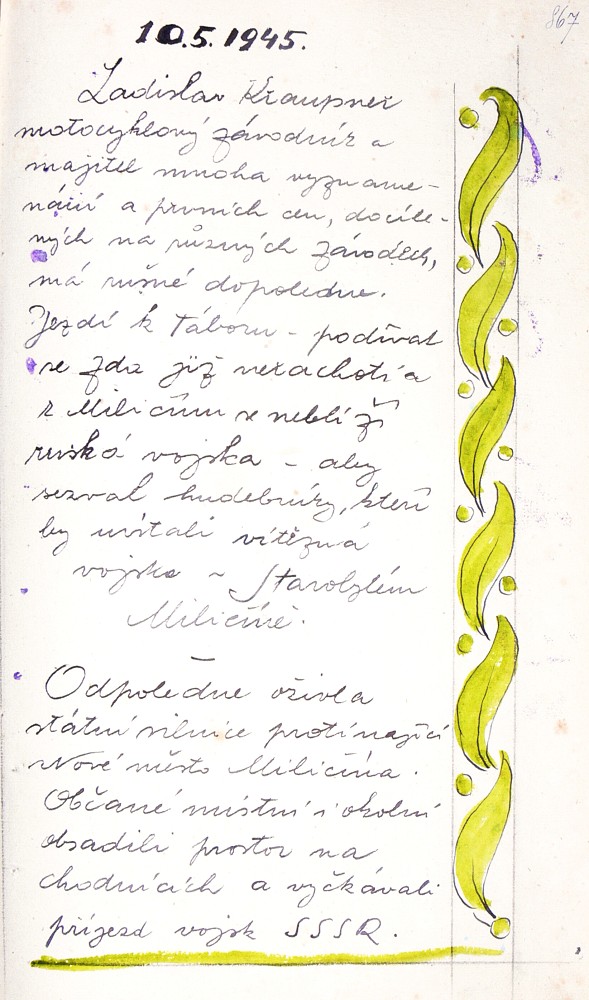 867
10.5.1945.
Ladislav Kraupner
motocyklový závodník a
majitel mnoha vyzname-
nání a prvních cen, docíle-
ných na různých závodech,
má rušné dopoledne.
Jezdí k Táboru - podívat
se zda již
k Miličínu se neblíží
ruská vojska - aby
sezval hudebníky, kteří
by uvítali vítězná
vojska ~ Starobylém
Miličíně.
Odpoledne oživla
státní silnice protínající
Nové město Miličína.
Občané místní i okolní
obsadili prostor na
chodnících a vyčkávali
příjezd vojsk SSSR.